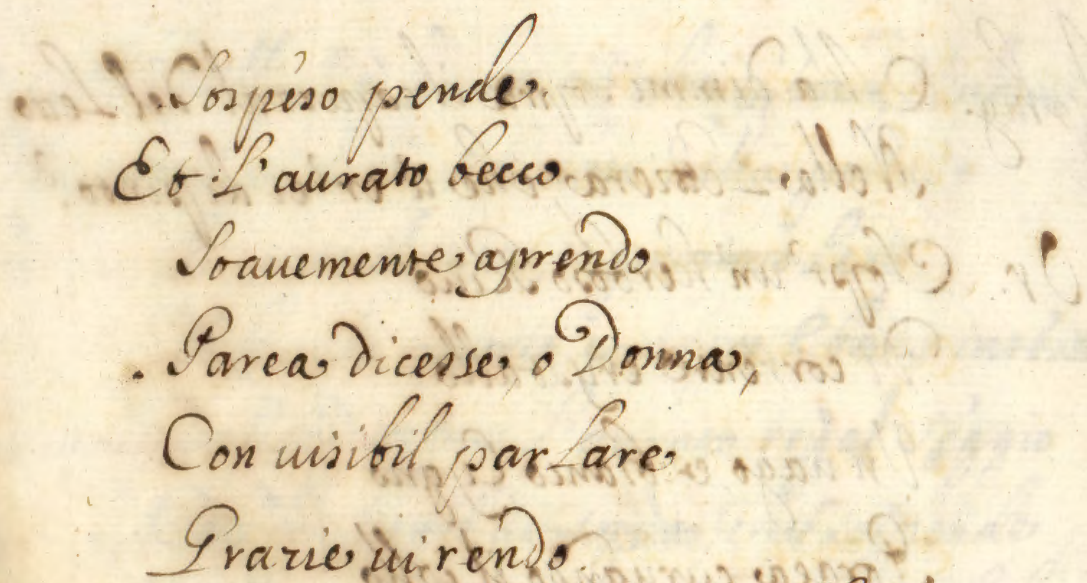 Sospeso pende.
Et L'aurato becco
Soauemente aprendo
Parea dicesse, o Donna,
Con uisibil parlare
Grazie ui rendo.